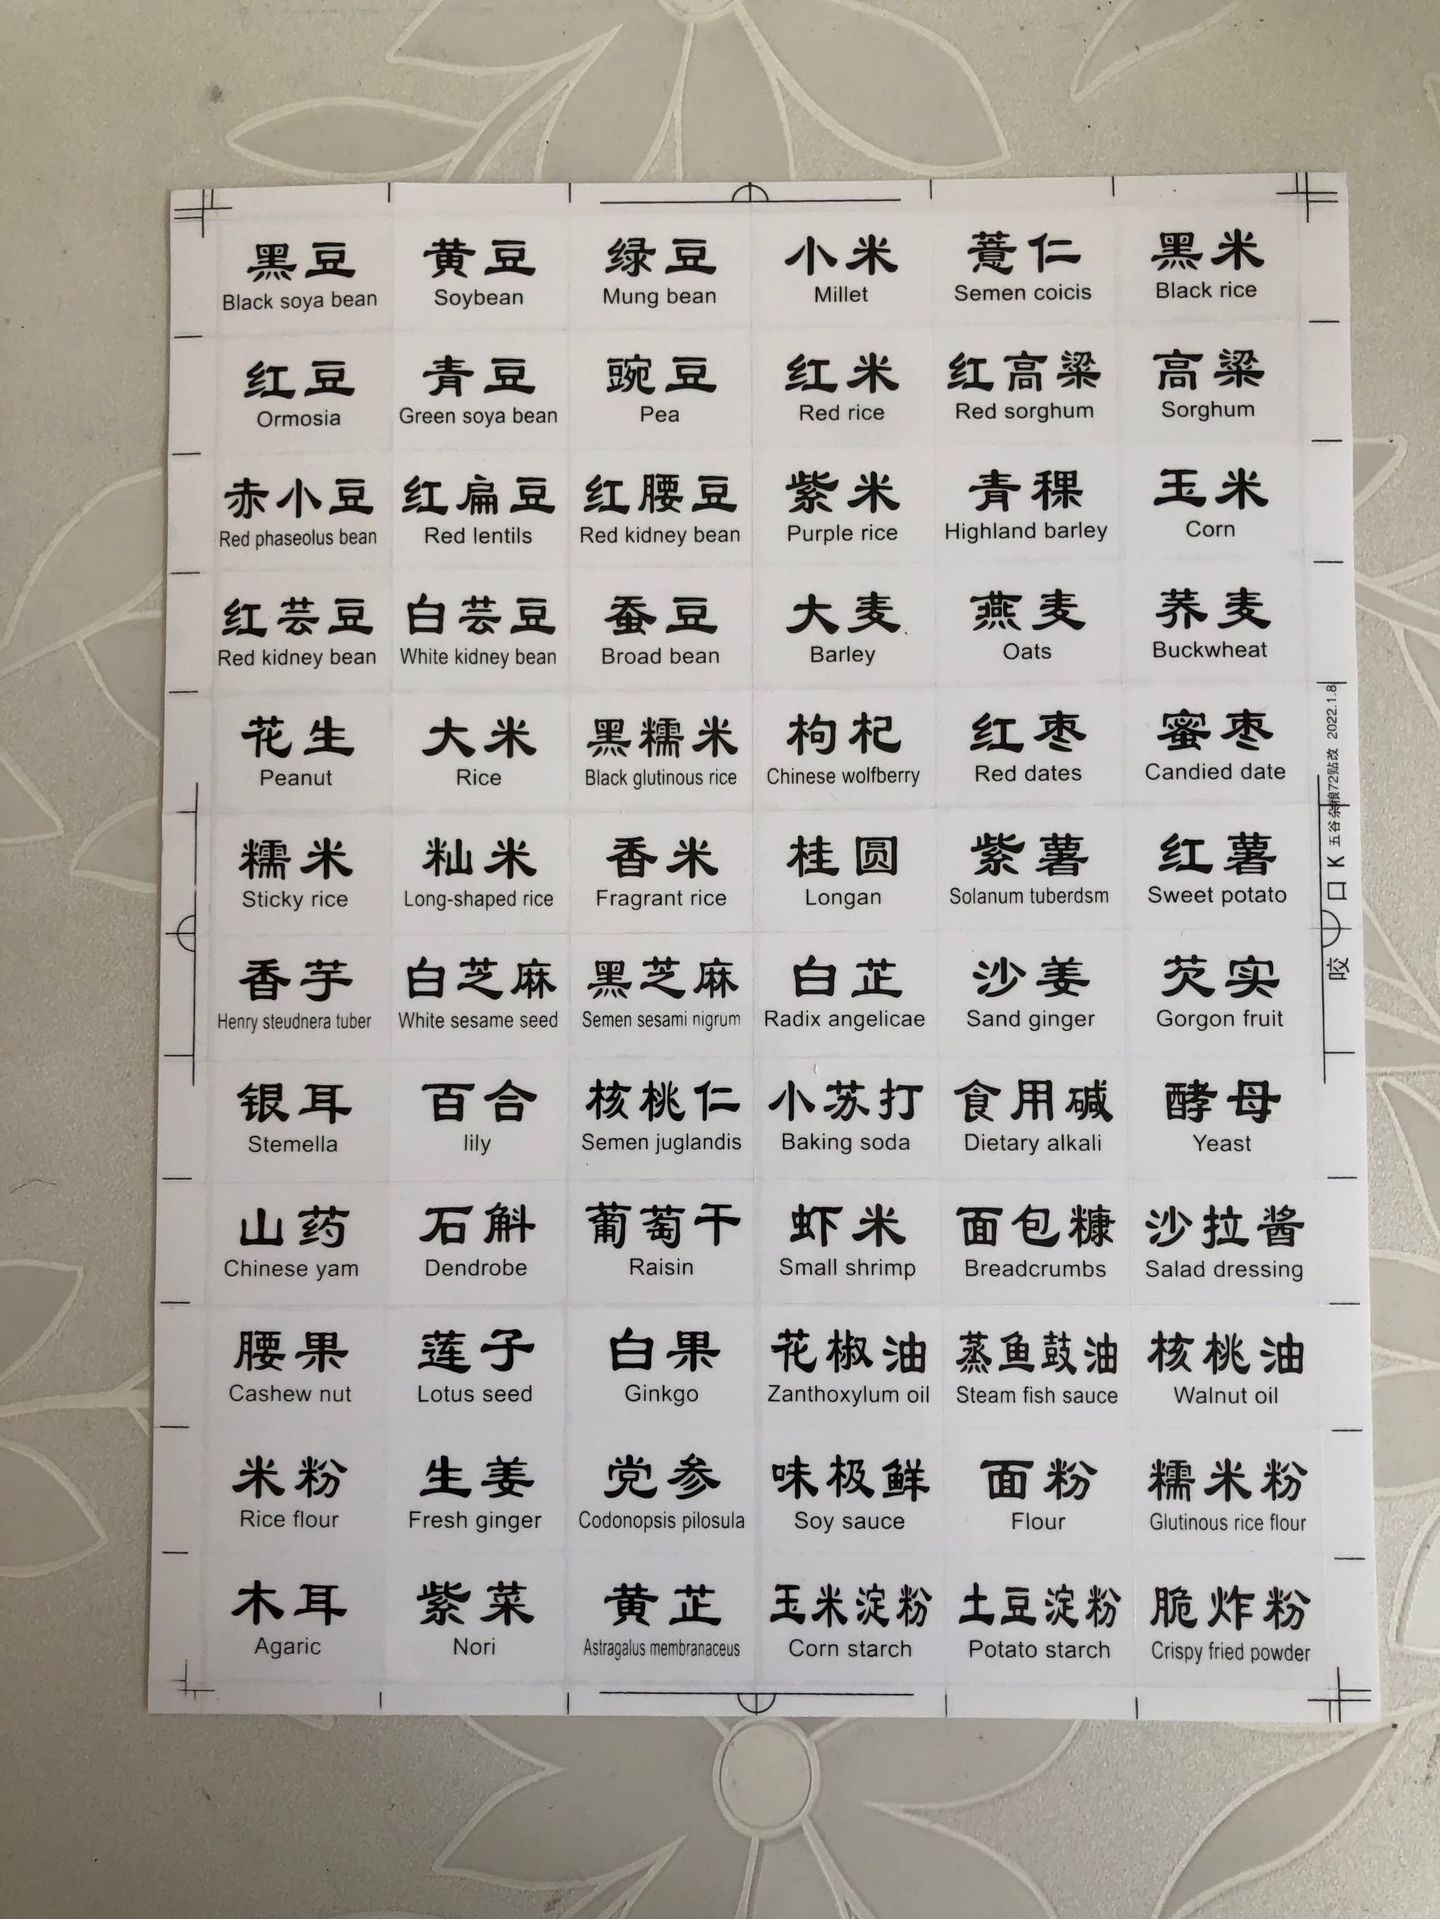 黑豆 黄豆 绿豆 小米 薏仁 黑米
Black soya bean Soybean Mung bean Millet Semen coicis Black rice
红豆 青豆 豌豆 红米 红高粱 高粱
Ormosia Green soya bean Pea Red rice Red sorghum Sorghum
赤小豆 红扁豆 红腰豆 紫米 青稞 玉米
Red phaseolus bean Red lentils Red kidney bean Purple rice Highland barley Corn
红芸豆 白芸豆 蚕豆 大麦 燕麦 荞麦
Red kidney bean White kidney bean Broad bean Barley Oats Buckwheat
花生 大米 黑糯米 枸杞 红枣 蜜枣
Peanut Rice Black glutinous rice Chinese wolfberry Red dates Candied date
糯米 籼米 香米 桂圆 紫薯 红薯
Sticky rice Long-shaped rice Fragrant rice Longan Solanum tuberdsm Sweet potato
香芋 白芝麻 黑芝麻 白芷 沙姜 芡实
Henry steudnera tuber White sesame seed Semen sesami nigrum Radix angelicae Sand ginger Gorgon fruit
银耳 百合 核桃仁 小苏打 食用碱 酵母
Stemella lily Semen juglandis Baking soda Dietary alkali Yeast
山药 石斛 葡萄干 虾米 面包糠 沙拉酱
Chinese yam Dendrobe Raisin Small shrimp Breadcrumbs Salad dressing
腰果 莲子 白果 花椒油 蒸鱼鼓油 核桃油
Cashew nut Lotus seed Ginkgo Zanthoxylum oil Steam fish sauce Walnut oil
米粉 生姜 党参 味极鲜 面粉 糯米粉
Rice flour Fresh ginger Codonopsis pilosula Soy sauce Flour Glutinous rice flour
木耳 紫菜 黄芷 玉米淀粉 土豆淀粉 脆炸粉
Agaric Nori Astragalus membranaceus Corn starch Potato starch Crispy fried powder
咬 口 K 五谷杂粮72贴改 2022.1.8